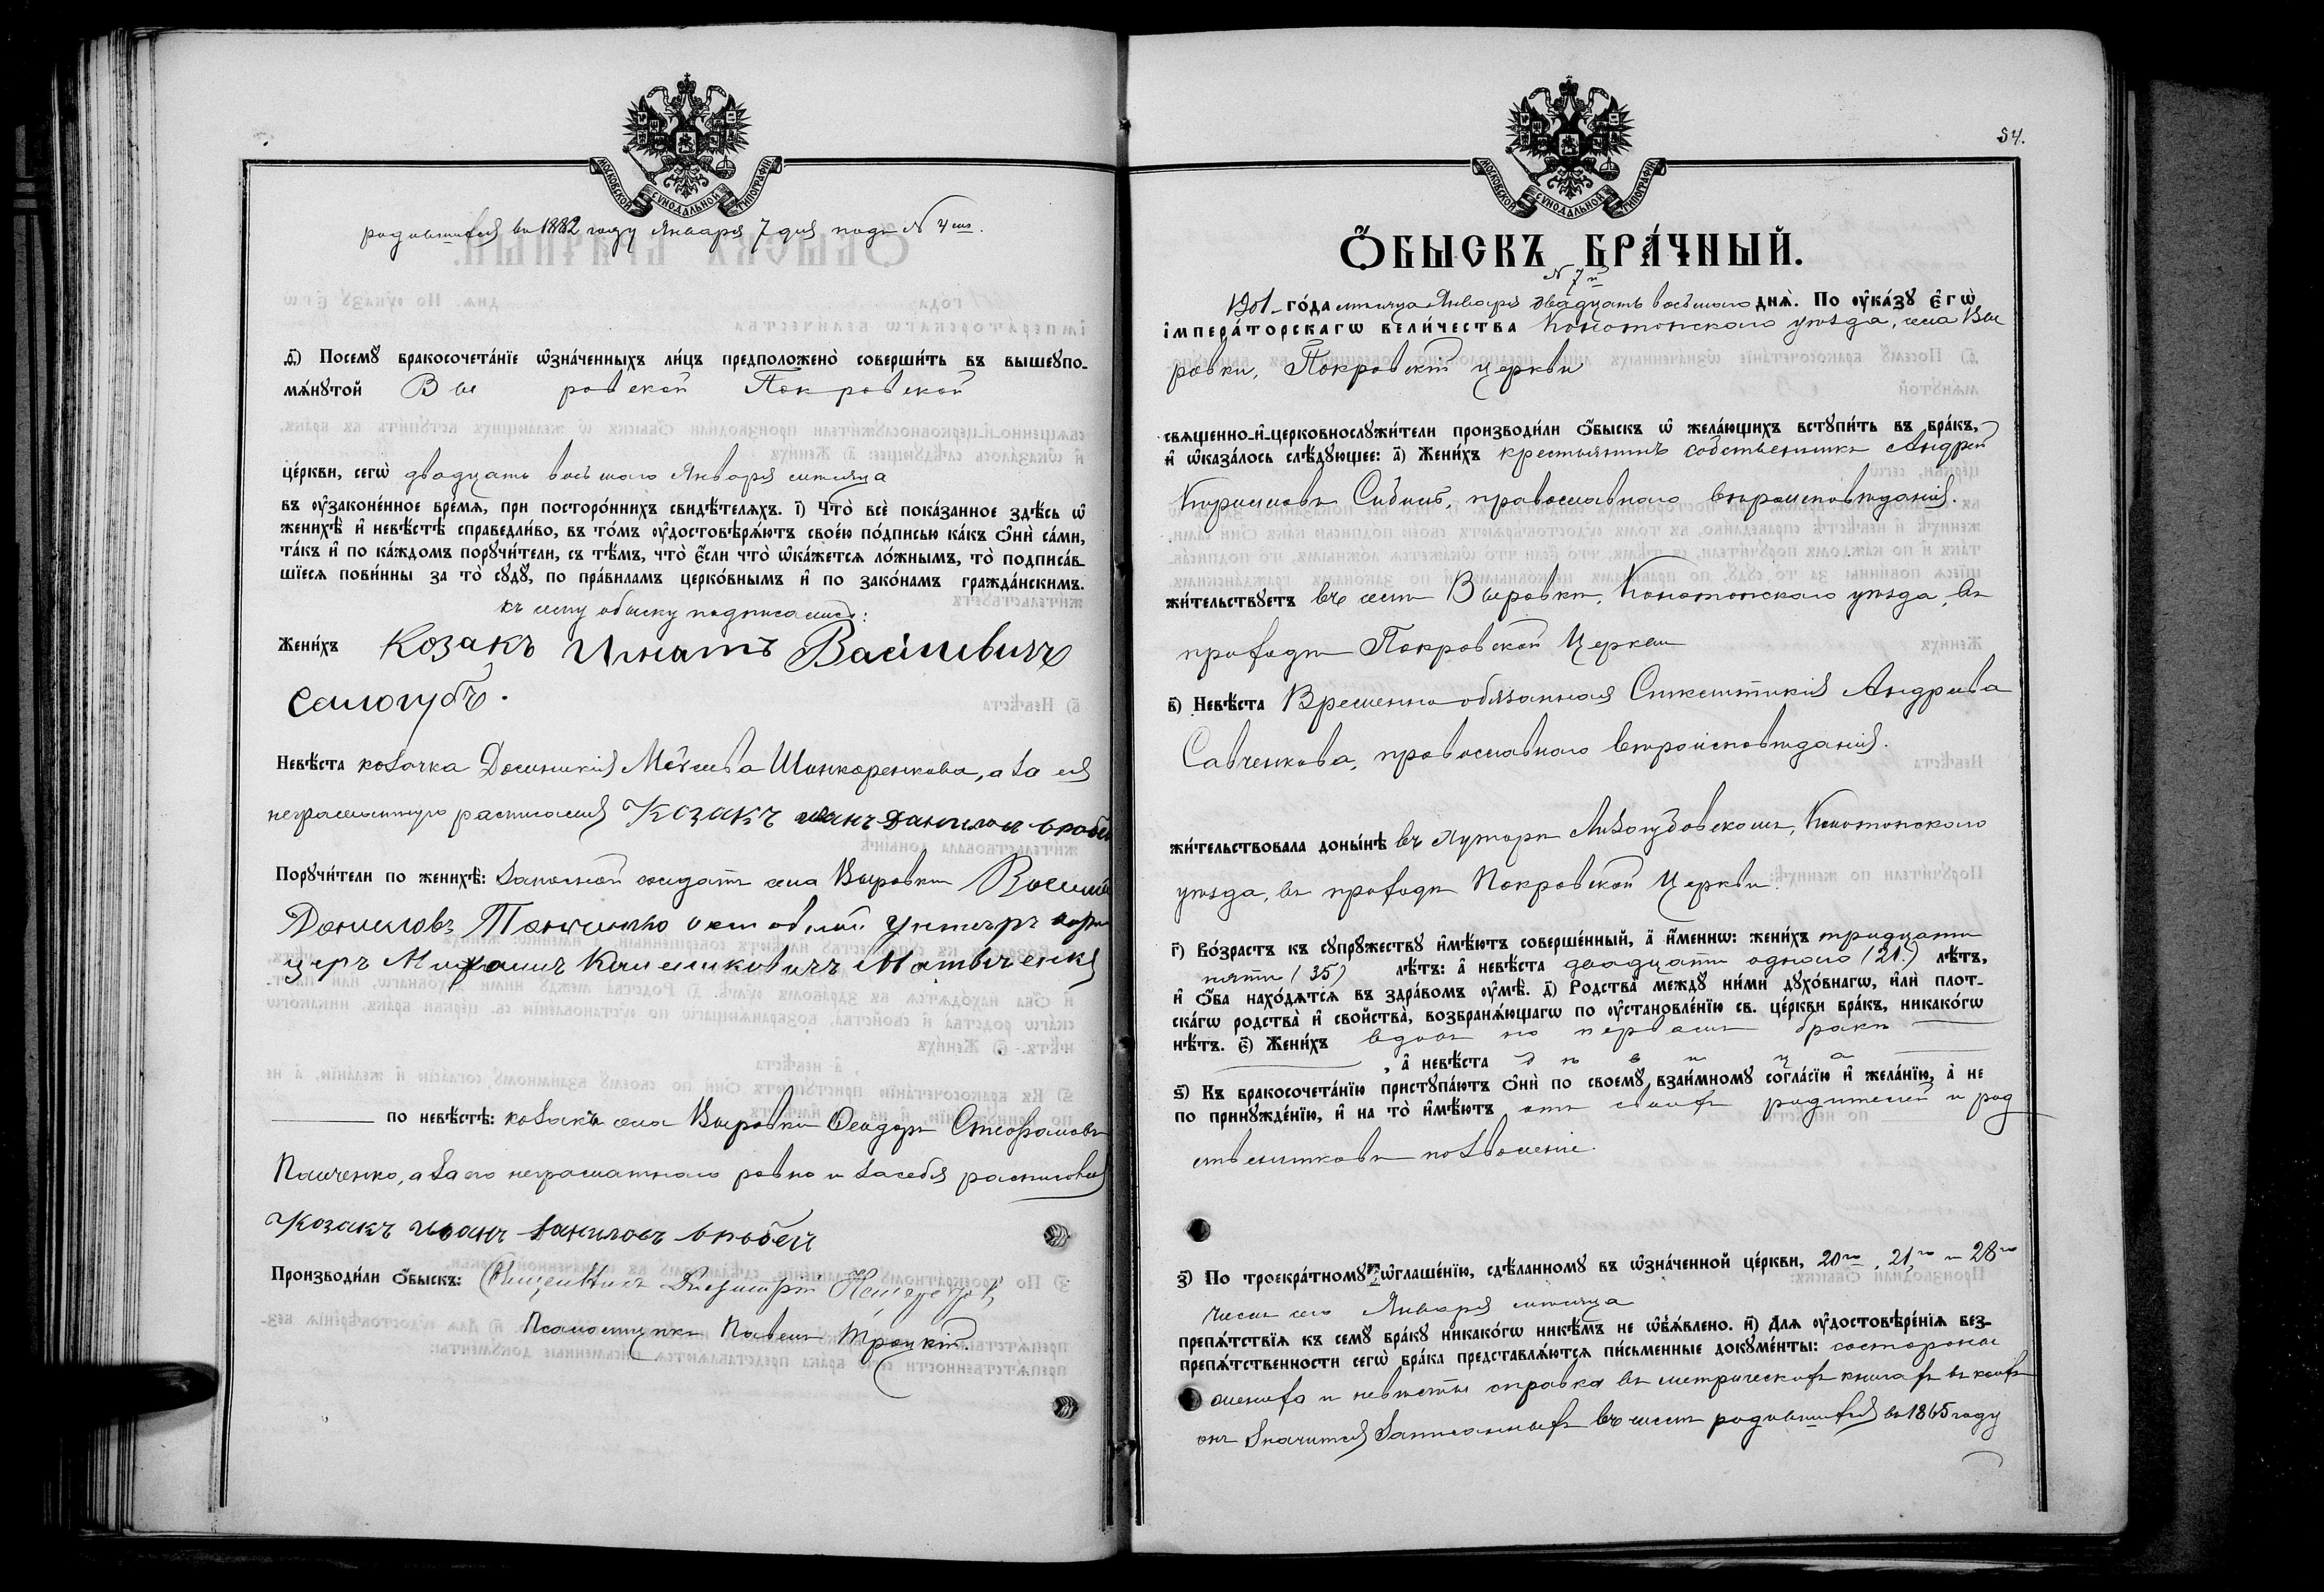 МОСКОВСКОЙ СѴНОДАЛЬНОЙ ТИПОГРАФІИ
родившейся въ 1882 году Января 7 дня подъ № 4мъ.
д҃) Посемꙋ̀ бракосочета́нїе ѡ҆зна́ченныхъ ли́цъ предположено̀ соверши́ть въ вышеꙋпо-
мѧ́нꙋтой Вы ровской Покровской
це́ркви, сегѡ̀ двадцать восьмого Января мѣсяца
въ ᲂу҆зако́ненное вре́мѧ, при посторо́ннихъ свидѣ́телѧхъ. і҃) Что̀ всѐ пока́занное здѣ́сь ѡ҆
женихѣ̀ и҆ невѣ́стѣ справедли́во, въ то́мъ ᲂу҆достовѣрѧ́ютъ свое́ю по́дписью ка́къ ѻ҆нѝ са́ми,
та́къ и҆ по ка́ждомъ порꙋчи́тели, съ тѣ́мъ, что̀ є҆́сли что̀ ѡ҆ка́жетсѧ ло́жнымъ, то̀ подписа́в-
шїесѧ пови́нны за то̀ сꙋдꙋ̀, по пра́виламъ церко́внымъ и҆ по зако́намъ гражда́нскимъ.
къ сему обыску подписались:
Жени́хъ Козакъ Игнатъ Васильевичъ
Салогубъ.
Невѣ́ста козачка Домникія Моѵсеева Шинкаренкова, а за ея
неграмотную росписался Козакъ иванъ даниловъ воробей
Порꙋчи́тели по женихѣ̀: запасной солдатъ села Выровки
Даниловъ Панченко
церъ Михаилъ
по невѣ́стѣ: козакъ села Выровки Ѳеодоръ Стефановъ
Панченко, а за его неграмотнаго равно и засебя росписовался
Козакъ иванъ даниловъ воробей
Производи́ли ѻ҆́быскъ: Священникъ Димитрій
Псаломщикъ Павелъ Троцкій.
54.
МОСКОВСКОЙ СѴНОДАЛЬНОЙ ТИПОГРАФІИ
Ѻ҆́БЫСКЪ БРА́ЧНЫЙ.
№ 7й
1901 го́да мѣсяца Января двадцать восьмого днѧ̀. По ᲂу҆ка́зꙋ є҆гѡ̀
і҆мпера́торскагѡ вели́чества Конотопскаго уѣзда, села Вы
ровки, Покровской церкви
свѧще́нно-и҆-церковнослꙋжи́тели производи́ли ѻ҆́быскъ ѡ҆ жела́ющихъ встꙋпи́ть въ бра́къ,
и҆ ѡ҆каза́лось слѣ́дꙋющее: а҃) Жени́хъ крестьянинъ собственникъ Андрей
Кирилловъ православнаго вѣроисповѣданія.
жи́тельствꙋетъ въ селѣ Выровкѣ, Конотопскаго уѣзда, въ
приходѣ Покровской Церкви
в҃) Невѣ́ста Временно обязанная Синклитикія Андреева
Савченкова, православнаго вѣроисповѣданія.
жи́тельствовала доны́нѣ въ Хуторѣ Лизогубовскомъ, Конотопскаго
уѣзда, въ приходѣ Покровской Церкви.
г҃) Во́зрастъ къ сꙋпрꙋ́жествꙋ и҆мѣ́ютъ соверше́нный, а҆ и҆́меннѡ: жени́хъ тридцати
пяти (35) лѣ́тъ: а҆ невѣ́ста двадцати одного (21.) лѣ́тъ,
и҆ ѻ҆́ба нахо́дѧтсѧ въ здра́вомъ ᲂу҆мѣ̀. д҃) Родства̀ междꙋ̀ ни́ми дꙋхо́внагѡ, и҆лѝ плот-
ска́гѡ родства̀ и҆ свойства̀, возбранѧ́ющагѡ по ᲂу҆становле́нїю св. це́ркви бра́къ, никако́гѡ
нѣ́тъ. є҃) Жени́хъ вдовъ по первомъ бракѣ
, а҆ невѣ́ста дѣвица
ѕ҃) Къ бракосочета́нїю пристꙋпа́ютъ ѻ҆нѝ по своемꙋ̀ взаи́мномꙋ согла́сїю и҆ жела́нїю, а҆ не
по принꙋжде́нїю, и҆ на то̀ и҆мѣ́ютъ отъ своихъ родителей и род
ственниковъ позволеніе.
з҃) По троекра́тномꙋ ѡ҆глаше́нїю, сдѣ́ланномꙋ въ ѡ҆зна́ченной це́ркви, 20го, 21го и 28го
чиселъ сего Января мѣсяца
препѧ́тствїѧ къ семꙋ̀ бра́кꙋ никако́гѡ никѣ́мъ не ѡ҆б̾ѧ́влено. и҃) Длѧ ᲂу҆достовѣре́нїѧ без-
препѧ́тственности сегѡ̀ бра́ка представлѧ́ютсѧ пи́сьменные докꙋме́нты: состороны
жениха и невѣсты справка въ метрическихъ книгахъ въ коихъ
онъ значится записаннымъ въ числѣ родившихся въ 1865 году